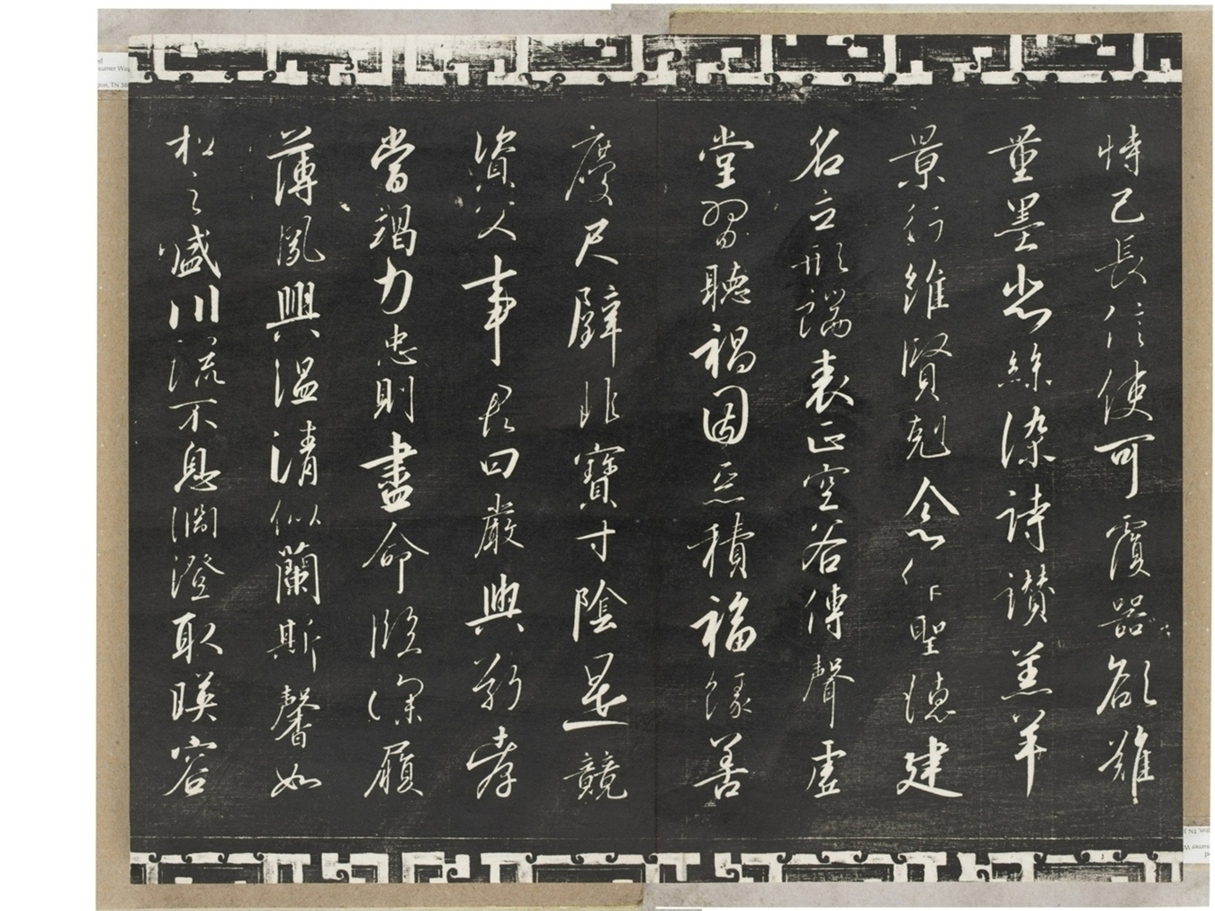 恃己長信使可覆器欲難
量墨悲絲染詩讃羔羊
景行維賢剋念作聖德建
名立形端表正空谷傳聲虛
堂習聽禍因惡積福緣善
慶尺璧非寶寸陰是競
資父事君曰嚴與敬孝
當竭力忠則盡命臨深履
薄夙興温清似蘭斯馨如
松之盛川流不息淵澄取暎容